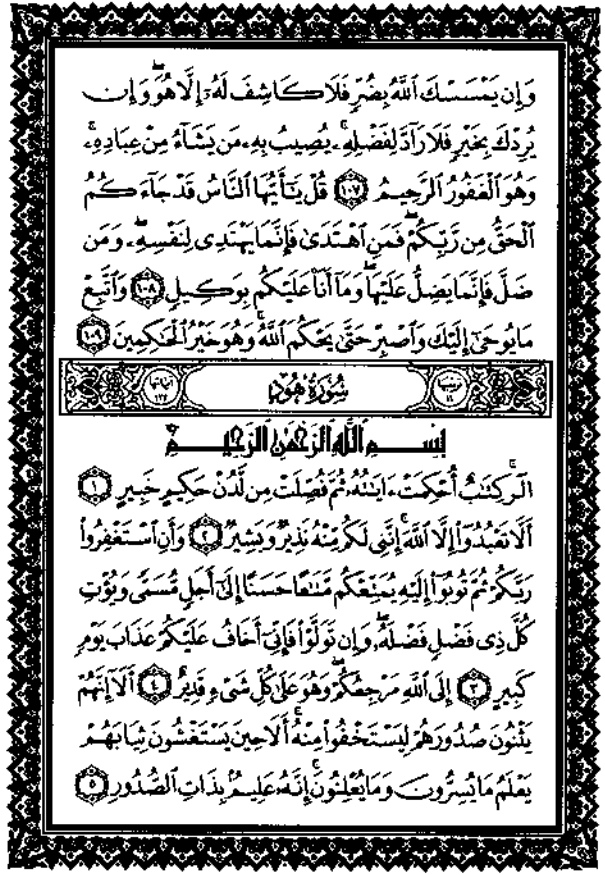 وَإِن يَمْسَسْكَ ٱللَّهُ بِضُرٍّ فَلَا كَاشِفَ لَهُۥٓ إِلَّا هُوَ ۖ وَإِن
يُرِدْكَ بِخَيْرٍ فَلَا رَآدَّ لِفَضْلِهِۦ ۚ يُصِيبُ بِهِۦ مَن يَشَآءُ مِنْ عِبَادِهِۦ ۚ
وَهُوَ ٱلْغَفُورُ ٱلرَّحِيمُ ١٠٧ قُلْ يَـٰٓأَيُّهَا ٱلنَّاسُ قَدْ جَآءَكُمُ
ٱلْحَقُّ مِن رَّبِّكُمْ ۖ فَمَنِ ٱهْتَدَىٰ فَإِنَّمَا يَهْتَدِى لِنَفْسِهِۦ ۖ وَمَن
ضَلَّ فَإِنَّمَا يَضِلُّ عَلَيْهَا ۖ وَمَآ أَنَا۠ عَلَيْكُم بِوَكِيلٍ ١٠٨ وَٱتَّبِعْ
مَا يُوحَىٰٓ إِلَيْكَ وَٱصْبِرْ حَتَّىٰ يَحْكُمَ ٱللَّهُ ۚ وَهُوَ خَيْرُ ٱلْحَـٰكِمِينَ ١٠٩
سُورَةُ هُودٍ
بِسْمِ ٱللَّهِ ٱلرَّحْمَـٰنِ ٱلرَّحِيمِ
الٓر ۚ كِتَـٰبٌ أُحْكِمَتْ ءَايَـٰتُهُۥ ثُمَّ فُصِّلَتْ مِن لَّدُنْ حَكِيمٍ خَبِيرٍ ١
أَلَّا تَعْبُدُوٓا۟ إِلَّا ٱللَّهَ ۚ إِنَّنِى لَكُم مِّنْهُ نَذِيرٌ وَبَشِيرٌ ٢ وَأَنِ ٱسْتَغْفِرُوا۟
رَبَّكُمْ ثُمَّ تُوبُوٓا۟ إِلَيْهِ يُمَتِّعْكُم مَّتَـٰعًا حَسَنًا إِلَىٰٓ أَجَلٍ مُّسَمًّى وَيُؤْتِ
كُلَّ ذِى فَضْلٍ فَضْلَهُۥ ۖ وَإِن تَوَلَّوْا۟ فَإِنِّىٓ أَخَافُ عَلَيْكُمْ عَذَابَ يَوْمٍ
كَبِيرٍ ٣ إِلَى ٱللَّهِ مَرْجِعُكُمْ ۖ وَهُوَ عَلَىٰ كُلِّ شَىْءٍ قَدِيرٌ ٤ أَلَآ إِنَّهُمْ
يَثْنُونَ صُدُورَهُمْ لِيَسْتَخْفُوا۟ مِنْهُ ۚ أَلَا حِينَ يَسْتَغْشُونَ ثِيَابَهُمْ
يَعْلَمُ مَا يُسِرُّونَ وَمَا يُعْلِنُونَ ۚ إِنَّهُۥ عَلِيمٌۢ بِذَاتِ ٱلصُّدُورِ ٥